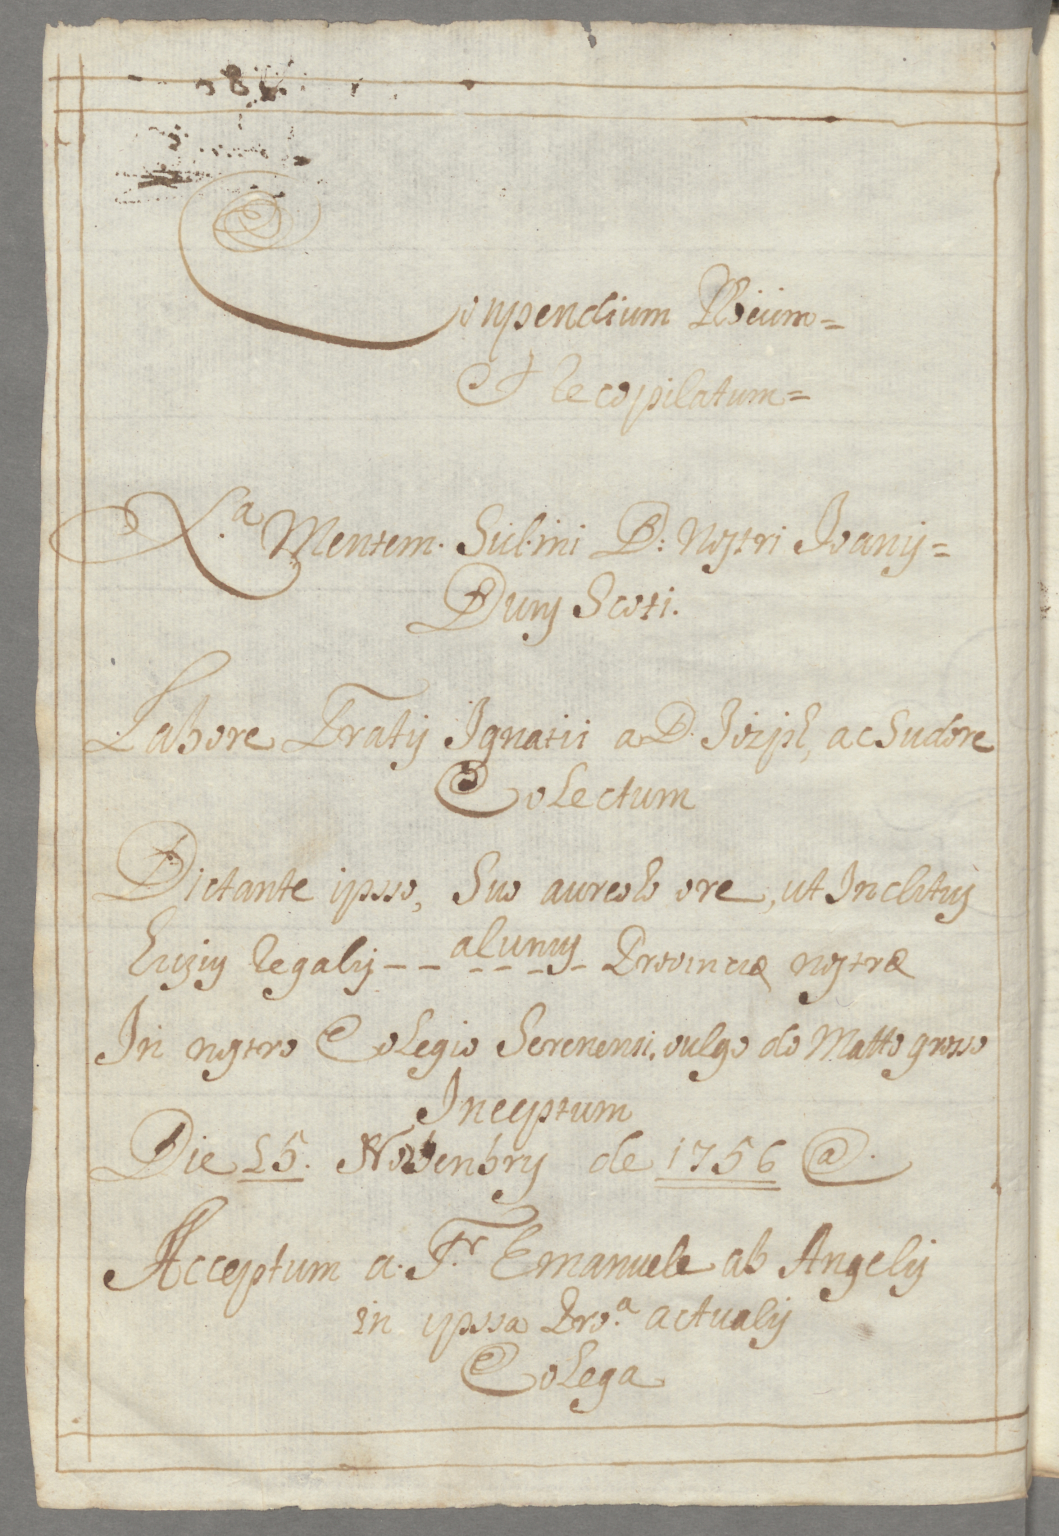 Conpendium
Et Recopilatum=
L.a Mentem. Sul.mi D: Nostri Joanis=
Duns Scoti.
Labore Fratis Ignatii a D. Jozph, ac Sudore
Colectum
Dictante ipsso, Suo aureolo ore, ut Inclitus
regalis -- alunus Provinciæ nostræ
In nostro Colegio Serenensi, vulgo do Matto grosso
Inceptum
Die 15. Novenbris de 1756 @.
Acceptum a. Fr. Emanuele ab Angelis
in ipssa Pro.a actualis
Colega